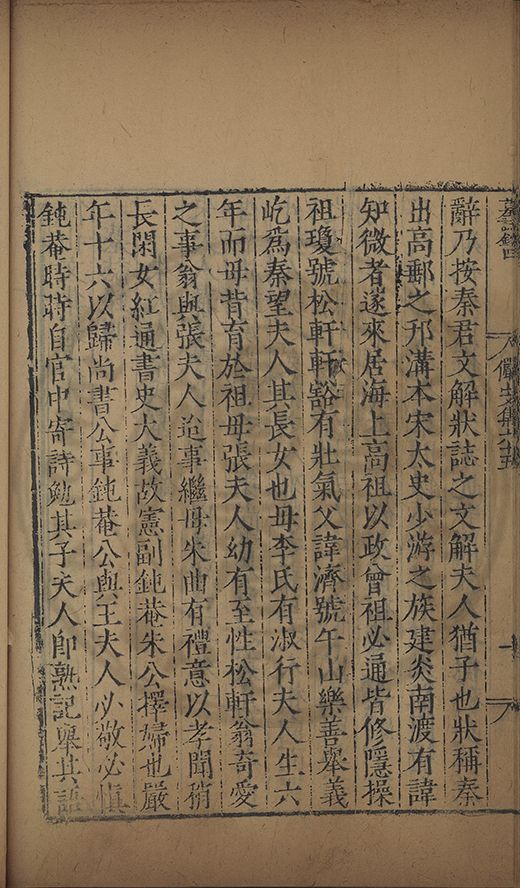 辭乃按秦君文解狀誌之文解夫人猶子也狀稱秦
出高郵之邗溝本宋太史少游之族建炎南渡有諱
知微者遂來居海上高祖以政曾祖必通皆修隱操
祖瓊號松軒軒豁有壯氣父諱濟號午山樂善舉義
屹爲秦望夫人其長女也毋李氏有淑行夫人生六
年而毋背育於祖毋張夫人幼有至性松軒翁奇愛
之事翁與張夫人迨事繼毋朱曲有禮意以孝聞稍
長閑女紅通書史大義故憲副鈍菴朱公擇婦也嚴
年十六以歸尚書公事鈍菴公與王夫人必敬必慎
鈍菴時時自官中寄詩勉其子夫人卽熟記舉其語